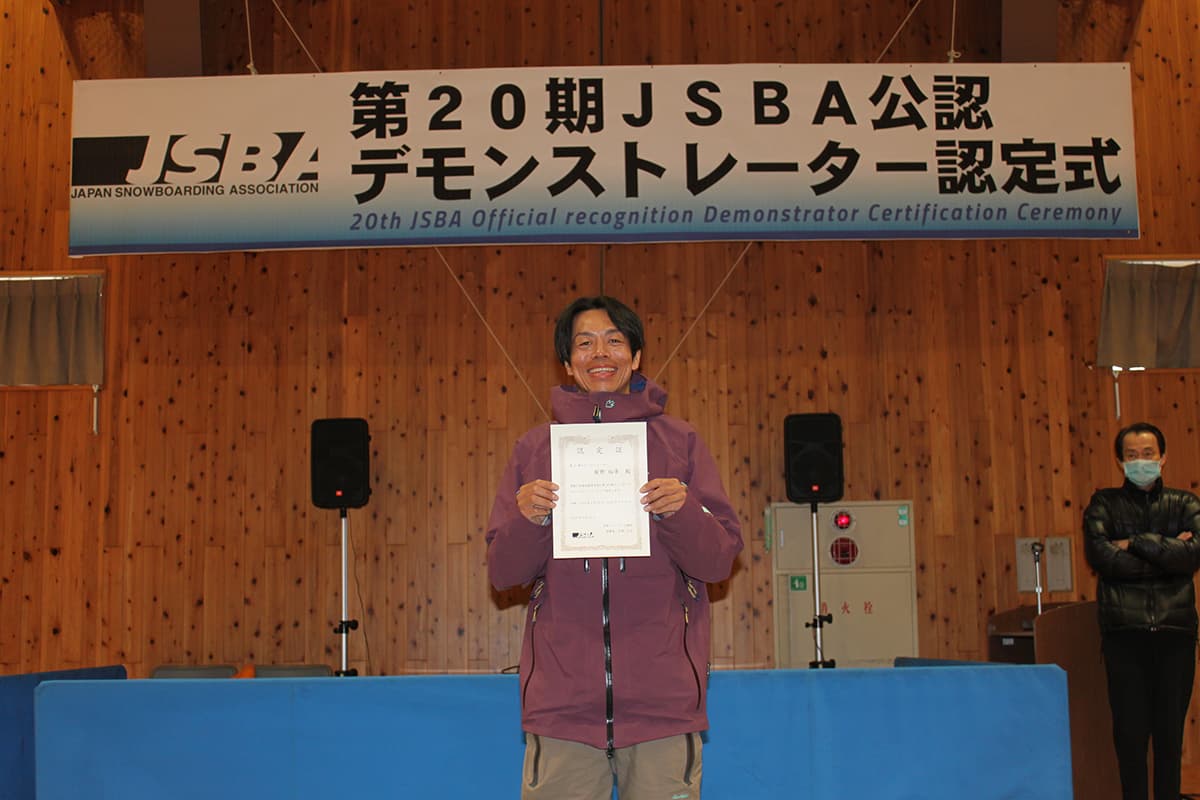 JSBA
JAPAN SNOWBOARDING ASSOCIATION
第20期JSBA公認
デモンストレーター認定式
20th JSBA Official recognition Demonstrator Certification Ceremony
認定証
消火栓